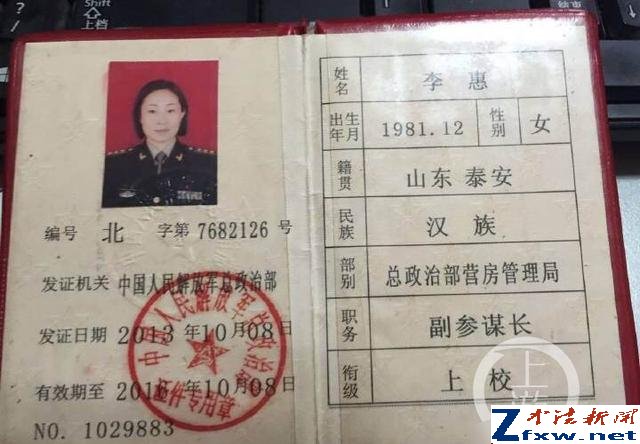 Shift
上档
结束
编号 北 字第 7682126 号
发证机关 中国人民解放军总政治部
发证日期 2013 年 10 月 08 日
有效期至 2016 年 10 月 08 日
NO. 1029883
中国人民解放军总政治部
证件专用章
姓名 李惠
出生年月 1981.12 性别 女
籍贯 山东 泰安
民族 汉族
部别 总政治部营房管理局
职务 副参谋长
衔级 上校
上游
法新闻
Zfxw.net